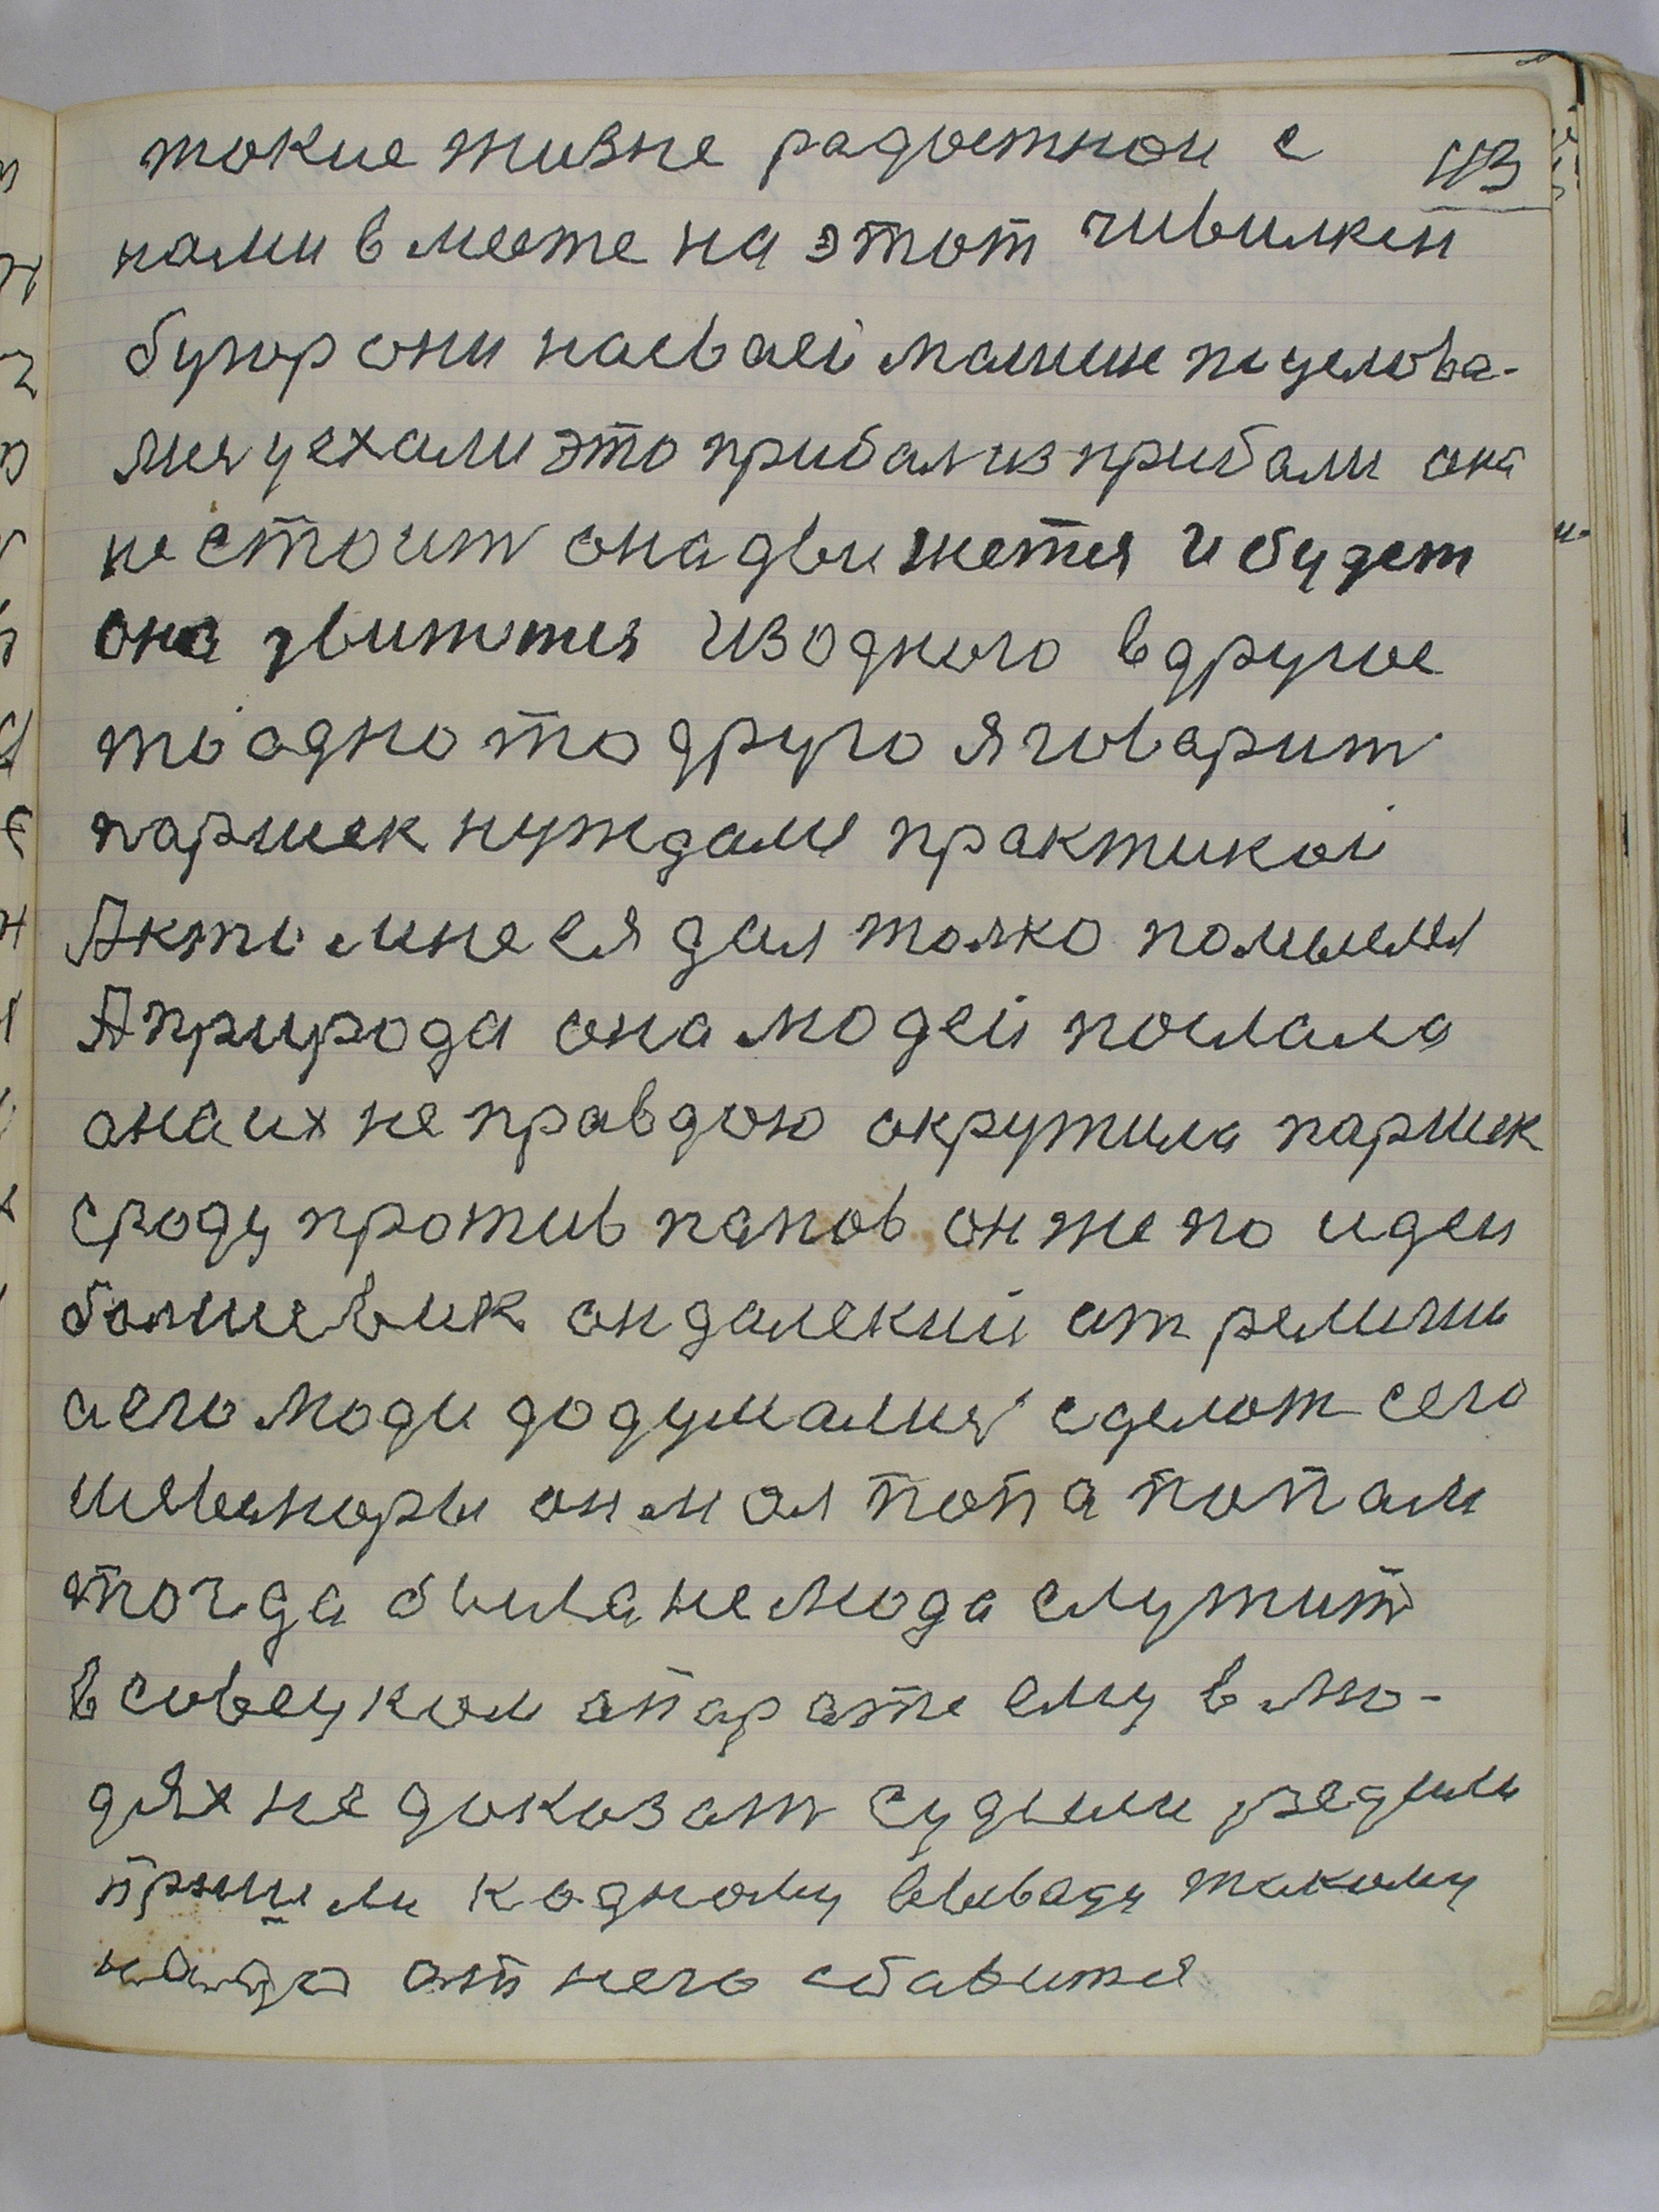 токие жизне радостнои с 113
нами вместе на этот чивилкин
бугор они насваеі машине поцелова-
лися уехали это прибализприбали она
не стоит она движется и будет
она двитжтся из одного в другое
то одно то друго я говарит
паршек нуждаме практикоі
А кто мне ея дал толко помыслел
А природа она людеи послала
она их не правдою окружила паршек
сроду против попов он же по идеи
болшевик он далекиі от религии
а его люди додумалися сделат с его
он мол попа попам
тогда была не мода служит
в совецком апарате ему в лю-
дях не доказат судили редили
пришли к одному выводу такому
надо от него збавится